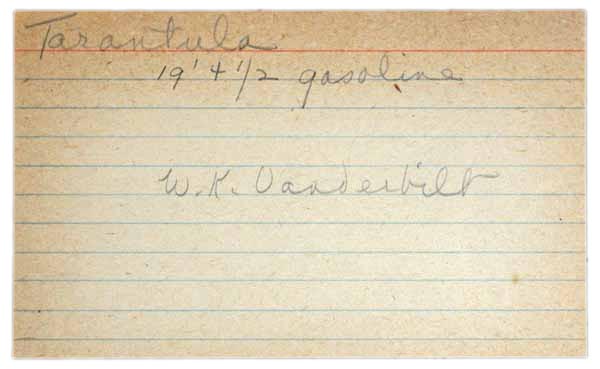 Tarantula
19' 4 1/2 gasoline
W. K. Vanderbilt